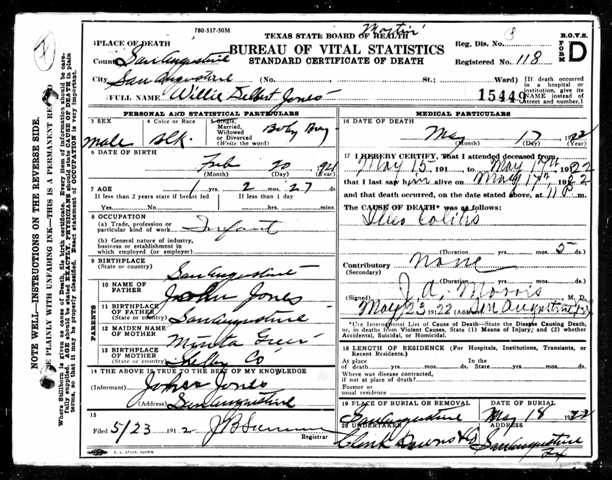 780-517-50M
TEXAS STATE BOARD OF HEALTH
BUREAU OF VITAL STATISTICS
STANDARD CERTIFICATE OF DEATH
Reg. Dis. No. 3
Registered No. 118
B.O.V.S. FORM D
15449
1 PLACE OF DEATH
County San Augustine
City San Augustine (No. St.; Ward)
[If death occurred in a hospital or institution, give its NAME instead of street and number.]
2 FULL NAME Willie Delbert Jones
PERSONAL AND STATISTICAL PARTICULARS
3 SEX Male
4 Color or Race Blk.
5 Single, Married, Widowed or Divorced (Write the word) Baby Boy
6 DATE OF BIRTH
Feb 20 1921
(Month) (Day) (Year)
7 AGE 1 yrs. 2 mos. 27 ds.
If less than 2 years state if breast fed If less than 1 day
8 OCCUPATION
(a) Trade, profession or particular kind of work Infant
(b) General nature of industry, business or establishment in which employed (or employer)
9 BIRTHPLACE (State or country) San Augustine
PARENTS
10 NAME OF FATHER John Jones
11 BIRTHPLACE OF FATHER (State or country) San Augustine
12 MAIDEN NAME OF MOTHER
13 BIRTHPLACE OF MOTHER (State or country) Shelby Co
14 THE ABOVE IS TRUE TO THE BEST OF MY KNOWLEDGE
(Informant) John Jones
(Address) San Augustine
15
Filed 5/23 1912
Registrar
MEDICAL PARTICULARS
16 DATE OF DEATH
May 17 1922
(Month) (Day) (Year)
17 I HEREBY CERTIFY, That I attended deceased from
May 15 191 , to May 17th 1922
that I last saw him alive on May 17th 1922
and that death occurred, on the date stated above, at 11 P m.
The CAUSE OF DEATH* was as follows:
Ileo Colitis
(Duration) yrs. mos. 5 ds.
Contributory (Secondary) None
(Duration) yrs. mos. ds.
(Signed) J. A. Morris M. D.
May 23 1922 (Address) San Augustine
*Use International List of Cause of Death—State the Disease Causing Death, or, in deaths from Violent Causes, State (1) Means of Injury; and (2) whether Accidental, Suicidal, or Homicidal.
18 LENGTH OF RESIDENCE (For Hospitals, Institutions, Transients, or Recent Residents.)
At place of death yrs. mos. ds. In the State yrs. mos. ds.
Where was disease contracted, if not at place of death?
Former or usual residence
19 PLACE OF BURIAL OR REMOVAL San Augustine
DATE OF BURIAL May 18 1922
20 UNDERTAKER Clark Downs
ADDRESS San Augustine Tx
NOTE WELL—INSTRUCTIONS ON THE REVERSE SIDE.
PLAINLY WITH UNFADING INK—THIS IS A PERMANENT